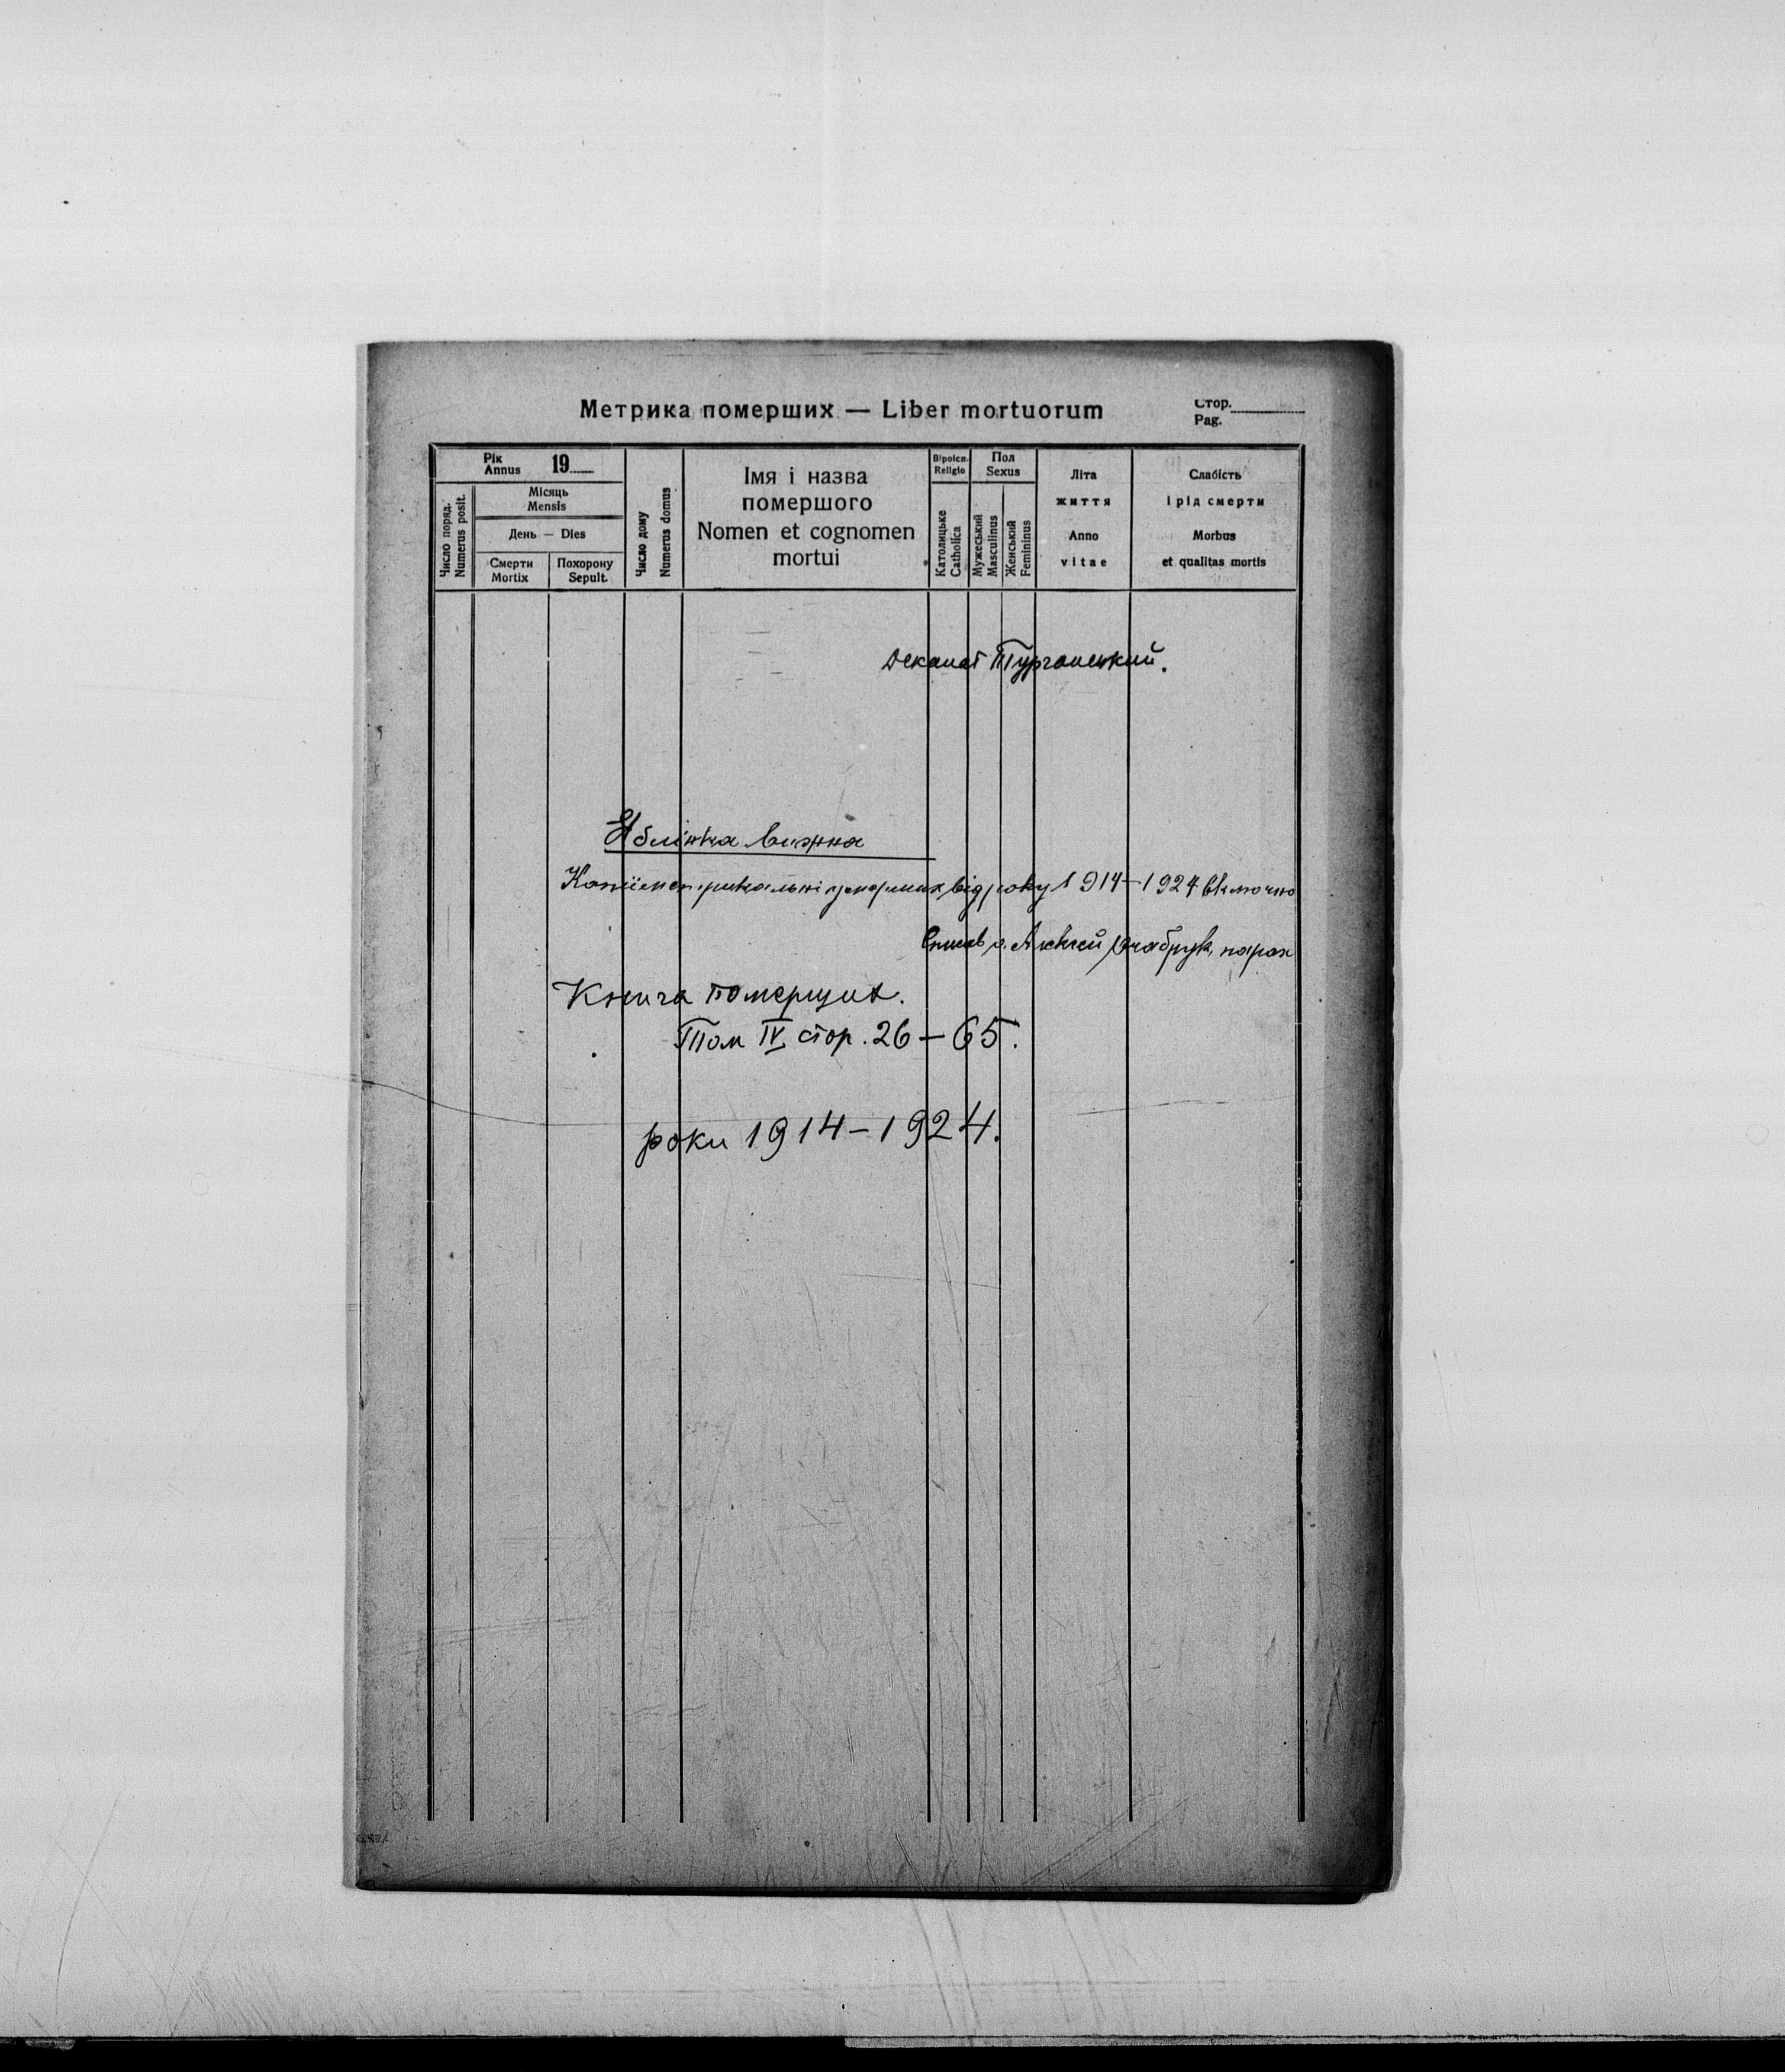 Метрика померших — Liber mortuorum
Стор.
Pag.
Рік
Annus 19
Число поряд.
Numerus posit.
Місяць
Mensis
День — Dies
Смерти
Mortix
Похорону
Sepult.
Число дому
Numerus domus
Імя і назва
помершого
Nomen et cognomen
mortui
Віроісп.
Religio
Католицьке
Catholica
Пол
Sexus
Мужеський
Masculinus
Женський
Femininus
Літа
життя
Anno
vitae
Слабість
і рід смерти
Morbus
et qualitas mortis
Деканат Турчанський.
Яблінка вижна
Копії метрикальні умерших від року 1914-1924 включно
о. парох
Книга померших.
Том IV, стор. 26-65.
роки 1914-1924.